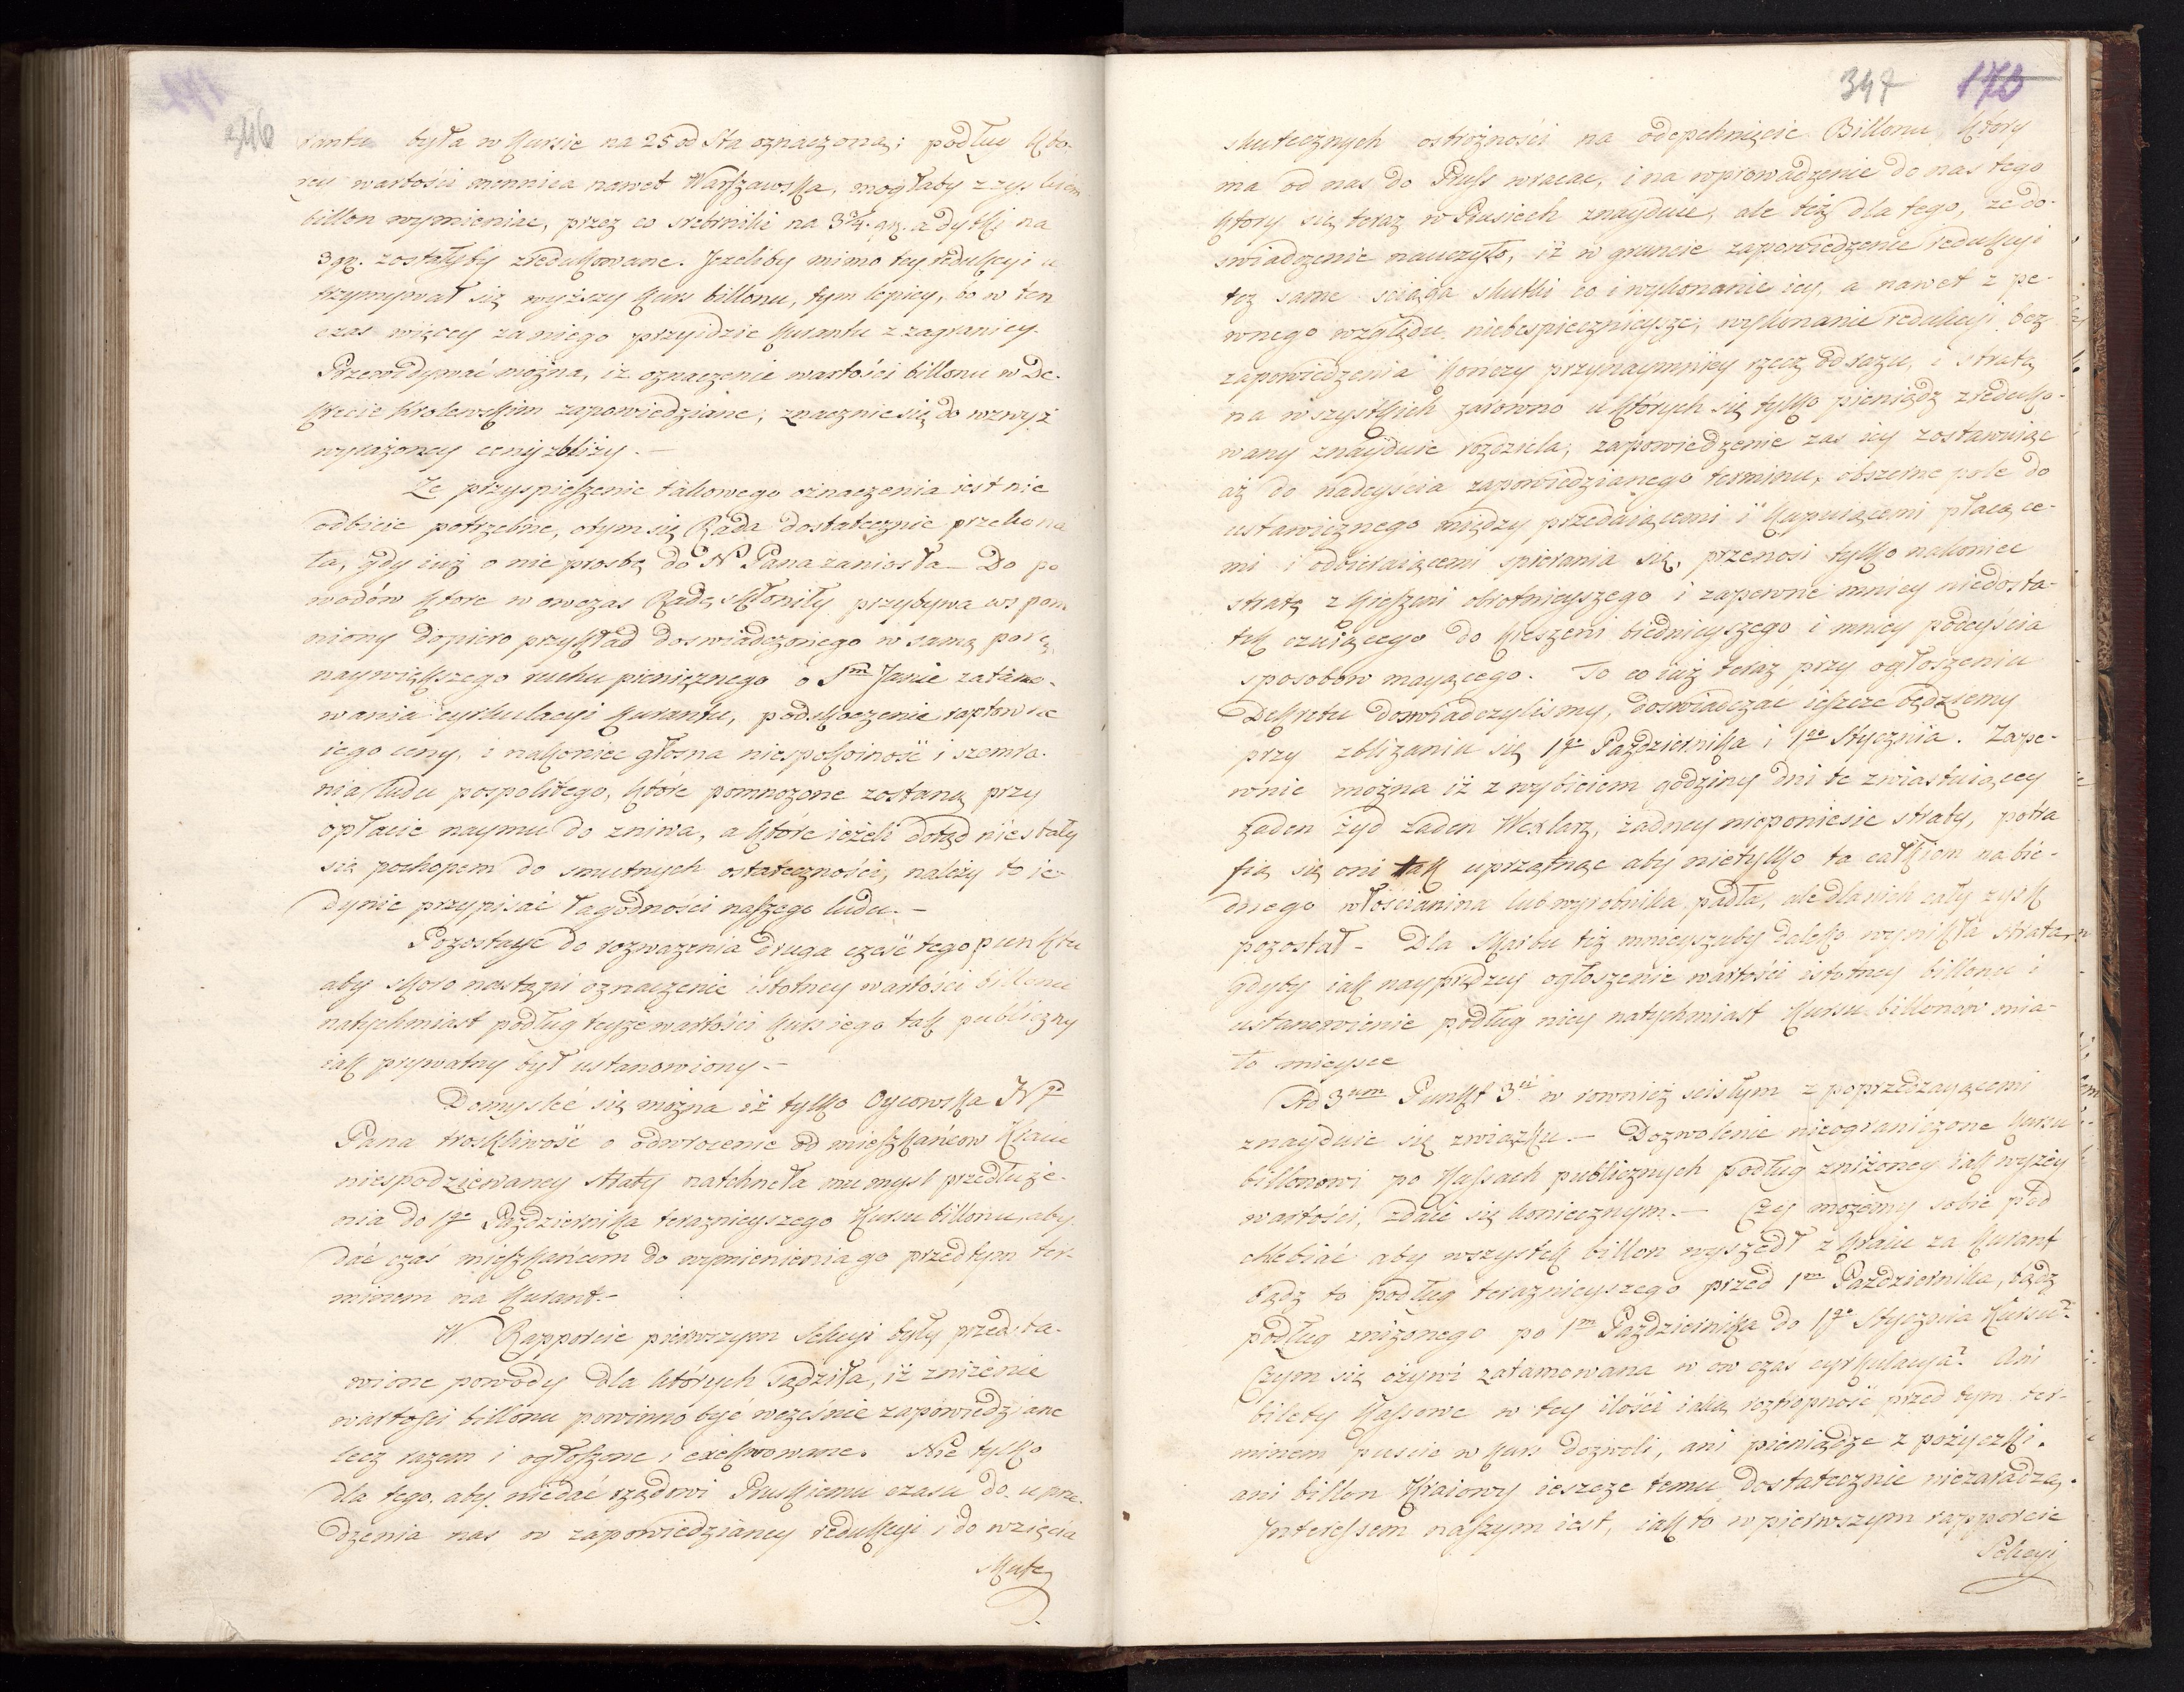 346
rantu była w kursie na 25 od sta oznaczona; podług kto-
rey wartości mennica nawet Warszawska, mogłaby z zyskiem
billon wymieniac, przez co srebrniki na 3¾ gr. a dytki na
3 gr. zostałyby zredukowane. Jezeliby mimo tey redukcyi u
trzymywał się wyższy kurs billonu, tym lepiey, bo w ten
czas więcey za niego przyidzie kurantu z zagranicy.
Przewidywać można, iz oznaczenie wartości billonu w De-
krecie Krolewskim zapowiedziane, znacznie się do wzwyż
wyrażoney ceny zbliży. —
Ze przyspieszenie takowego oznaczenia iest nie
odbicie potrzebne, o tym się Rada dostatecznie przekona
ła, gdy iuż o nie prosbę do N Pana zaniosła — Do po
wodów ktore w owczas Radę skłoniły przybywa wspom
niony dopiero przykład doswiadczonego w samą porę
naywiększego ruchu pienięznego o Sm Janie zatamo-
wania cyrkulacyi kurantu, podskoczenie raptowne
iego ceny, i nakoniec głosna niespokoiność i szemra-
nia ludu pospolitego, które pomnozone zostaną przy
opłacie naymu do zniwa, a które ieżeli dotąd nie stały
się pochopem do smutnych ostateczności, należy to ie-
dynie przypisać łagodności naszego ludu. —
Pozostaye do rozwazenia druga część tego punktu
aby skoro nastąpi oznaczenie istotney wartości billonu
natychmiast podług teyże wartości kurs iego tak publiczny
iak prywatny był ustanowiony. —
Domyslć się można iż tylko Oycowska Ngo
Pana troskliwość o odwrocenie od mieszkańcow Kraiu
niespodziewaney straty natchneła mu mysl przedłuże-
nia do 1go Października teraznieyszego kursu billonu, aby
dać czas mieszkańcom do wymienienia go przed tym ter-
minem na kurant. —
W Rapporcie pierwszym Sekcyi były przedsta-
wione powody dla których sądziła, iż zniżenie
wartości billonu powinno być wcześnie zapowiedziane
lecz razem i ogłoszone i exekwowane. Nie tylko
dla tego, aby niedać rządowi Pruskiemu czasu do uprze-
dzenia nas w zapowiedzianey redukcyi i do wzięcia
skute
347 173
skutecznych ostrożności na odepchnięcie Billonu ktory
ma od nas do Pruss wracac, i na wprowadzenie do nas tego
ktory się teraz w Prusiech znayduie, ale też dla tego, że do-
swiadczenie nauczyło, iż w gruncie zapowiedzenie redukcyi
też same sciąga skutki co i wykonanie iey, a nawet z pe-
wnego względu niebespiecznieysze; wykonanie redukcyi bez
zapowiedzenia kończy przynaymniey rzecz od razu, i stratę
na wszystkich zarowno u których się tylko pieniądz zreduko-
wany znayduie rozdziela; zapowiedzenie zas iey zostawuiąc
aż do nadeyścia zapowiedzianego terminu, obszerne pole do
ustawicznego między przedaiącemi i kupuiącemi płacące-
mi i odbieraiącemi spierania się, przenosi tylko nakoniec
stratę z kieszeni obrotnieyszego i zapewne mniey niedosta-
tek czuiącego do kieszeni biednieyszego i mniey podeyścia
sposobow maiącego. To co iuż teraz przy ogłoszeniu
Dekretu doswiadczylismy, doswiadczać ieszcze będziemy
przy zblizaniu się 1go Października i 1go Stycznia. Zape-
wnie można iż z wybiciem godziny dni te zwiastuiącey
żaden żyd żaden Wexlarz, żadney nieponiesie straty, potra
fią się oni tak uprzątnąc aby nietylko ta całkiem na bie-
dnego włościanina lub wyrobnika padła, ale dla nich cały zysk
pozostał — Dla skarbu też mnieyszaby daleko wynikła strata
gdyby iak nayprędzey ogłoszenie wartości istotney billonu i
ustanowienie podług niey natychmiast kursu billonów mia-
ło mieysce
Ad 3tium Punkt 3ci w rownież scisłym z poprzedzaiącemi
znayduie się związku. — Dozwolenie nieograniczone kursu
billonowi po kassach publicznych podług zniżoney iak wyżey
wartości, zdaie się koniecznym. — Czy możemy sobie pod
chlebiać aby wszystek billon wyszedł z kraiu za kurant
bądz to podług teraznieyszego przed 1m Października, bądz
podług zniżonego po 1m Października do 1go Stycznia kursu?
Czym się ożywi zatamowana w ow czas cyrkulacya? Ani
bilety kassowe w tey ilości iaką roztropność przed tym ter-
minem puscic w kurs dozwoli, ani pieniądze z pożyczki,
ani billon kraiowy ieszcze temu dostatecznie niezaradzą.
Interessem naszym iest, iak to w pierwszym rapporcie
Sekcyi